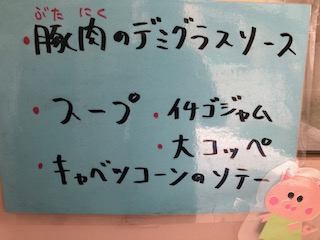 ぶた にく
・豚肉のデミグラスソース
・スープ ・イチゴジャム
・大コッペ
・キャベツコーンのソテー